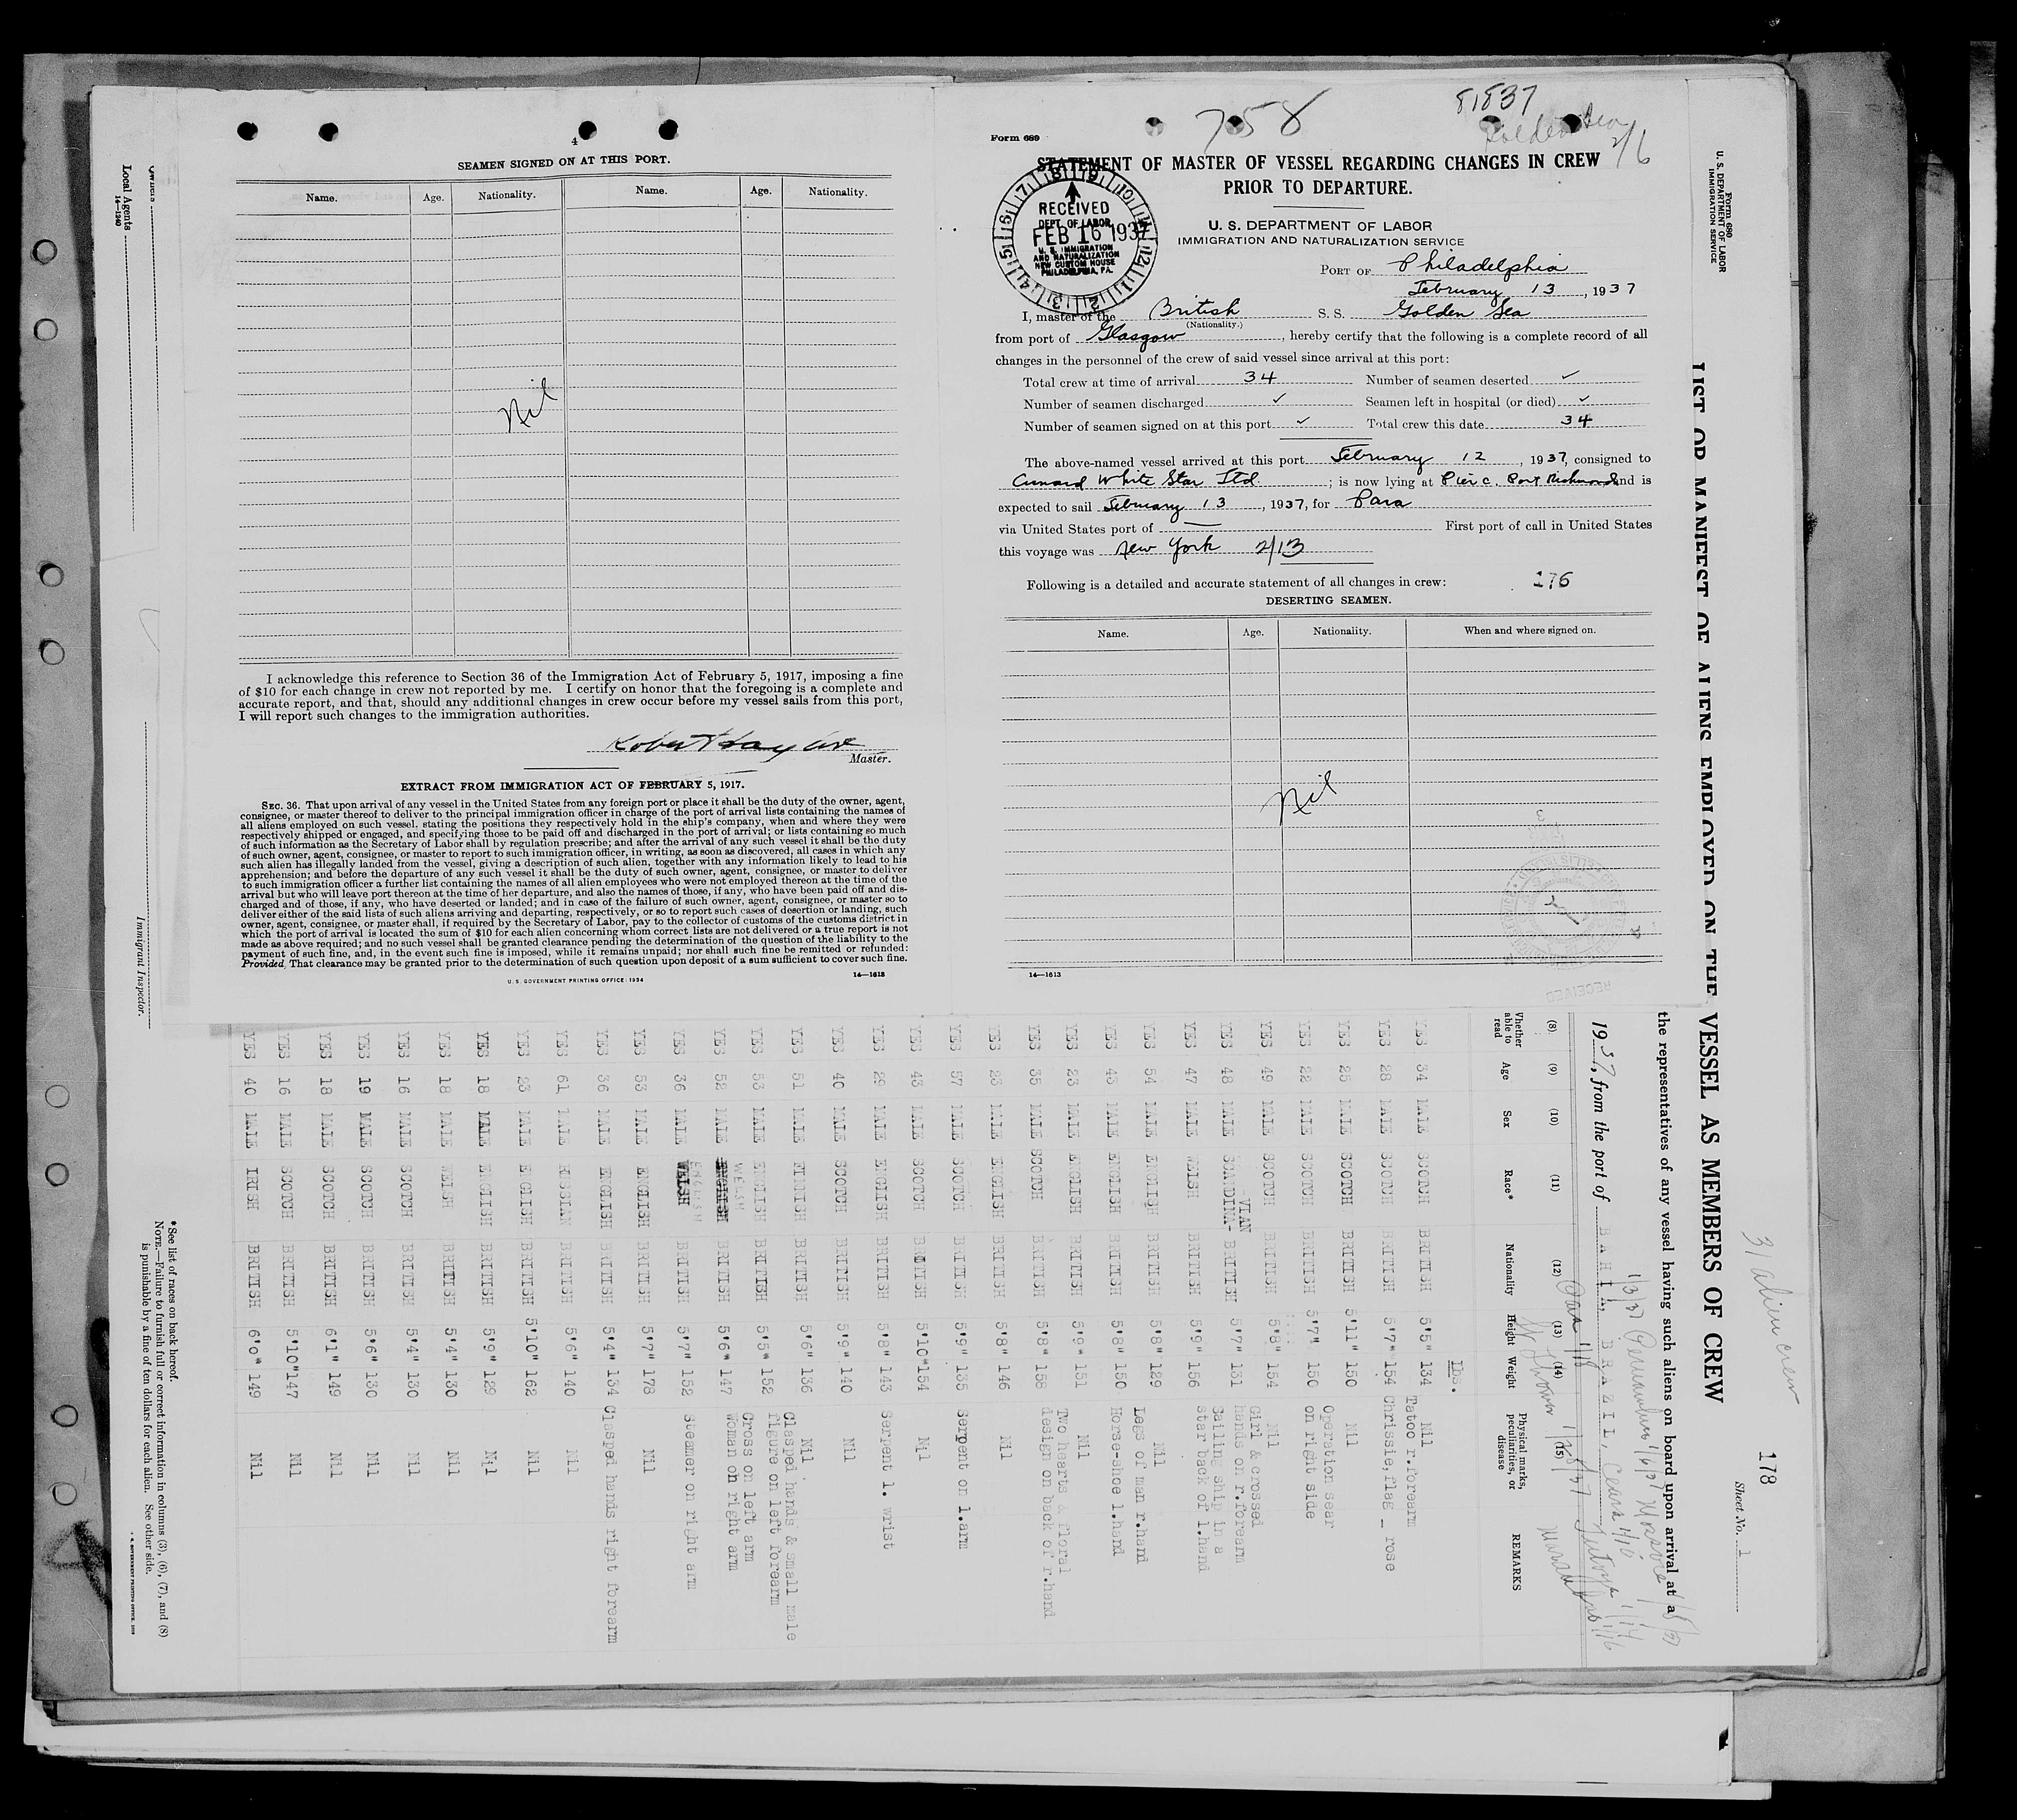 4
SEAMEN SIGNED ON AT THIS PORT.
Name. Age. Nationality. Name. Age. Nationality.
Nil
I acknowledge this reference to Section 36 of the Immigration Act of February 5, 1917, imposing a fine
of $10 for each change in crew not reported by me. I certify on honor that the foregoing is a complete and
accurate report, and that, should any additional changes in crew occur before my vessel sails from this port,
I will report such changes to the immigration authorities.
Master.
EXTRACT FROM IMMIGRATION ACT OF FEBRUARY 5, 1917.
SEC. 36. That upon arrival of any vessel in the United States from any foreign port or place it shall be the duty of the owner, agent,
consignee, or master thereof to deliver to the principal immigration officer in charge of the port of arrival lists containing the names of
all aliens employed on such vessel, stating the positions they respectively hold in the ship's company, when and where they were
respectively shipped or engaged, and specifying those to be paid off and discharged in the port of arrival; or lists containing so much
of such information as the Secretary of Labor shall by regulation prescribe; and after the arrival of any such vessel it shall be the duty
of such owner, agent, consignee, or master to report to such immigration officer, in writing, as soon as discovered, all cases in which any
such alien has illegally landed from the vessel, giving a description of such alien, together with any information likely to lead to his
apprehension; and before the departure of any such vessel it shall be the duty of such owner, agent, consignee, or master to deliver
to such immigration officer a further list containing the names of all alien employees who were not employed thereon at the time of the
arrival but who will leave port thereon at the time of her departure, and also the names of those, if any, who have been paid off and dis-
charged and of those, if any, who have deserted or landed; and in case of the failure of such owner, agent, consignee, or master so to
deliver either of the said lists of such aliens arriving and departing, respectively, or so to report such cases of desertion or landing, such
owner, agent, consignee, or master shall, if required by the Secretary of Labor, pay to the collector of customs of the customs district in
which the port of arrival is located the sum of $10 for each alien concerning whom correct lists are not delivered or a true report is not
made as above required; and no such vessel shall be granted clearance pending the determination of the question of the liability to the
payment of such fine, and, in the event such fine is imposed, while it remains unpaid; nor shall such fine be remitted or refunded:
Provided, That clearance may be granted prior to the determination of such question upon deposit of a sum sufficient to cover such fine.
U. S. GOVERNMENT PRINTING OFFICE: 1934 14—1613
758
81837
Golden Sea
2/6
Form 689
STATEMENT OF MASTER OF VESSEL REGARDING CHANGES IN CREW
PRIOR TO DEPARTURE.
U. S. DEPARTMENT OF LABOR
IMMIGRATION AND NATURALIZATION SERVICE
RECEIVED
DEPT. OF LABOR
FEB 16 1937
U. S. IMMIGRATION
AND NATURALIZATION
NEW CUSTOM HOUSE
PHILADELPHIA, PA.
PORT OF Philadelphia
February 13, 1937
I, master of the British S. S. Golden Sea
(Nationality.)
from port of Glasgow, hereby certify that the following is a complete record of all
changes in the personnel of the crew of said vessel since arrival at this port:
Total crew at time of arrival 34 Number of seamen deserted ✓
Number of seamen discharged ✓ Seamen left in hospital (or died) ✓
Number of seamen signed on at this port ✓ Total crew this date 34
The above-named vessel arrived at this port February 12, 1937, consigned to
Cunard White Star Ltd.; is now lying at Pier C. Port Richmond and is
expected to sail February 13, 1937, for Para
via United States port of — First port of call in United States
this voyage was New York 2/13
Following is a detailed and accurate statement of all changes in crew: 176
DESERTING SEAMEN.
Name. Age. Nationality. When and where signed on.
Nil
14—1613
Form 680
U. S. DEPARTMENT OF LABOR
IMMIGRATION SERVICE
31 alien crew
178
Sheet No. 1
LIST OR MANIFEST OF ALIENS EMPLOYED ON THE VESSEL AS MEMBERS OF CREW
the representatives of any vessel having such aliens on board upon arrival at a
1937, from the port of BAHIA, BRAZIL,
(8) (9) (10) (11) (12) (13) (14) (15)
Whether able to read Age Sex Race* Nationality Height Weight Physical marks, peculiarities, or disease REMARKS
Lbs.
YES 34 MALE SCOTCH BRITISH 5'5" 134 Nil
YES 28 MALE SCOTCH BRITISH 5'7" 154 Tatoo r.forearm Chrissie, flag _ rose
YES 25 MALE SCOTCH BRITISH 5'11" 150 Nil
YES 22 MALE SCOTCH BRITISH 5'7" 150 Operation scar on right side
YES 49 MALE SCOTCH BRITISH 5'8" 154 Nil
YES 48 MALE SCANDINA-VIAN BRITISH 5'7" 131 Girl & crossed hands on r.forearm
YES 47 MALE WELSH BRITISH 5'9" 156 Sailing ship in a star back of l.hand
YES 54 MALE ENGLISH BRITISH 5'8" 129 Nil
YES 43 MALE ENGLISH BRITISH 5'8" 150 Legs of man r.hand Horse-shoe l.hand
YES 23 MALE ENGLISH BRITISH 5'9" 151 Nil
YES 35 MALE SCOTCH BRITISH 5'8" 158 Two hearts & floral design on back of r.hand
YES 23 MALE ENGLISH BRITISH 5'8" 146 Nil
YES 57 MALE SCOTCH BRITISH 5'9" 135 Serpent on l.arm
YES 43 MALE SCOTCH BRITISH 5'10" 154 Nil
YES 29 MALE ENGLISH BRITISH 5'8" 143 Serpent l. wrist
YES 40 MALE SCOTCH BRITISH 5'9" 140 Nil
YES 51 MALE FINNISH BRITISH 5'6" 136 Nil
YES 53 MALE ENGLISH BRITISH 5'5" 152 Clasped hands & small male figure on left forearm
YES 52 MALE WELSH BRITISH 5'6" 147 Cross on left arm Woman on right arm
YES 36 MALE ENGLISH BRITISH 5'7" 152 Steamer on right arm
YES 53 MALE ENGLISH BRITISH 5'7" 178 Nil
YES 36 MALE ENGLISH BRITISH 5'4" 134 Clasped hands right forearm
YES 61 MALE RUSSIAN BRITISH 5'6" 140 Nil
YES 23 MALE EGLISH BRITISH 5'10" 162 Nil
YES 18 MALE ENGLISH BRITISH 5'9" 129 Nil
YES 18 MALE WELSH BRITISH 5'4" 130 Nil
YES 16 MALE SCOTCH BRITISH 5'4" 130 Nil
YES 19 MALE SCOTCH BRITISH 5'6" 130 Nil
YES 18 MALE SCOTCH BRITISH 6'1" 149 Nil
YES 16 MALE SCOTCH BRITISH 5'10" 147 Nil
YES 40 MALE IRISH BRITISH 6'0" 149 Nil
Owners
Local Agents
14—1240
Immigrant Inspector.
*See list of races on back hereof.
NOTE.—Failure to furnish full or correct information in columns (3), (6), (7), and (8)
is punishable by a fine of ten dollars for each alien. See other side.